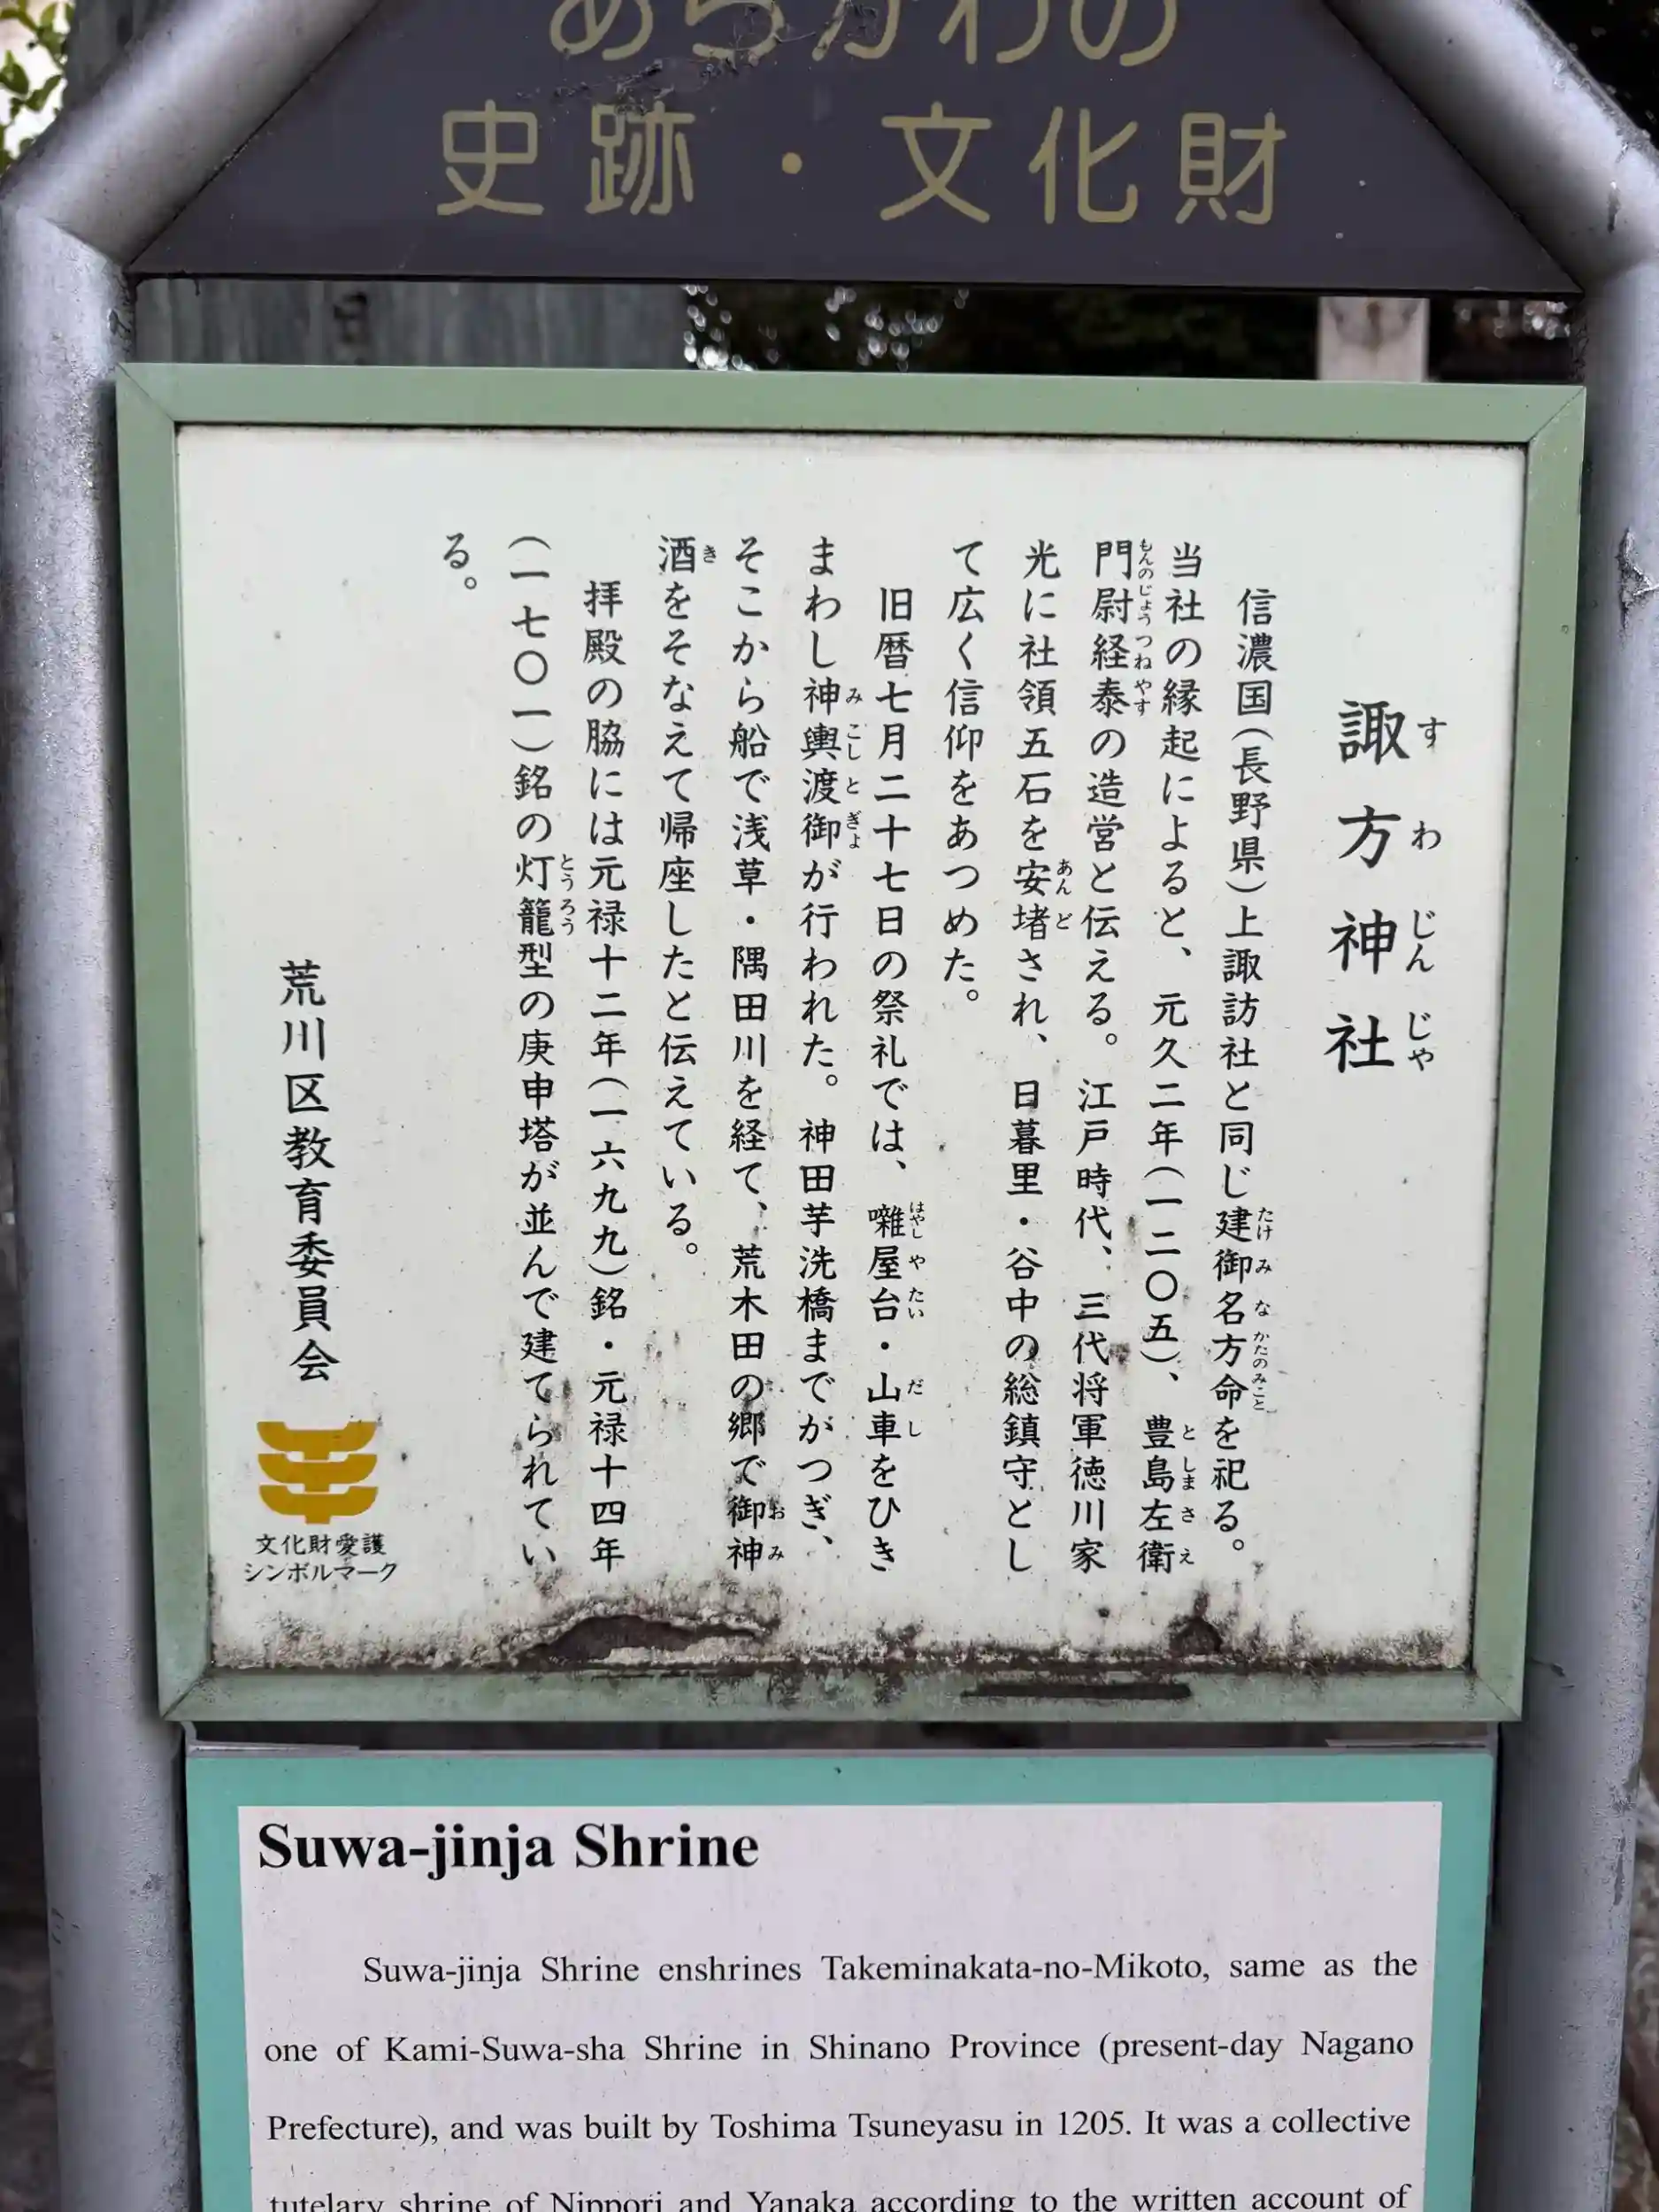 あらかわの
史跡・文化財
諏方神社
すわじんじゃ
信濃国(長野県)上諏訪社と同じ建御名方命を祀る。
たけみなかたのみこと
当社の縁起によると、元久二年(一二〇五)、豊島左衛
としまさえ
門尉経泰の造営と伝える。江戸時代、三代将軍徳川家
もんのじょうつねやす
光に社領五石を安堵され、日暮里・谷中の総鎮守とし
あんど
て広く信仰をあつめた。
旧暦七月二十七日の祭礼では、囃屋台・山車をひき
はやしやたい だし
まわし神輿渡御が行われた。神田芋洗橋までがつぎ、
みこしとぎょ
そこから船で浅草・隅田川を経て、荒木田の郷で御神
おみ
酒をそなえて帰座したと伝えている。
き
拝殿の脇には元禄十二年(一六九九)銘・元禄十四年
(一七〇一)銘の灯籠型の庚申塔が並んで建てられてい
とうろう
る。
荒川区教育委員会
文化財愛護
シンボルマーク
Suwa-jinja Shrine
Suwa-jinja Shrine enshrines Takeminakata-no-Mikoto, same as the
one of Kami-Suwa-sha Shrine in Shinano Province (present-day Nagano
Prefecture), and was built by Toshima Tsuneyasu in 1205. It was a collective
tutelary shrine of Nippori and Yanaka according to the written account of